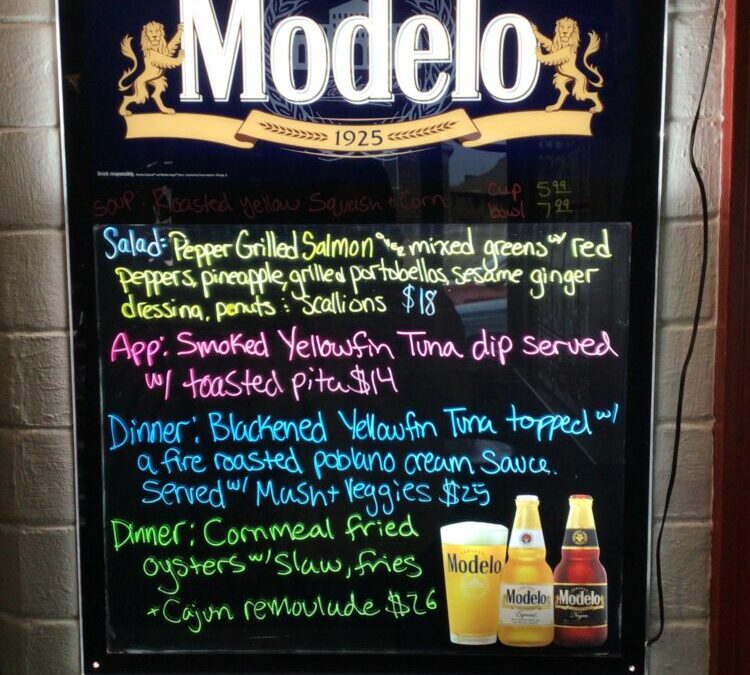 Modelo
1925
Drink responsibly.
Soup: Roasted Yellow Squash + Corn cup 5.99
bowl 7.99
Salad: Pepper Grilled Salmon mixed greens w/ red
peppers, pineapple, grilled portobellos, sesame ginger
dressing, penuts : scallions $18
App: Smoked Yellowfin Tuna dip served
w/ toasted pita $14
Dinner: Blackened Yellowfin Tuna topped w/
a fire roasted poblano cream Sauce.
Served w/ Mash + Veggies $25
Dinner: Cornmeal fried
oysters w/ Slaw, fries
+ Cajun remoulade $26
Modelo
Modelo
Especial
Modelo
Negra